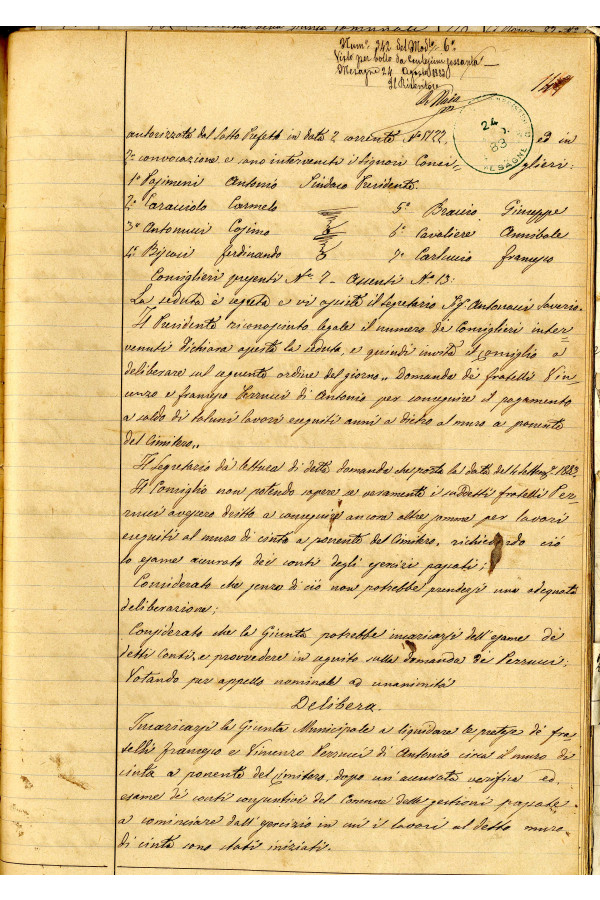 Num.° 342 del Mod.lo 6°
Visto per bollo da Centesimi sessanta
Mesagne 24 Agosto 1883
Il Ricevitore
24
83
MESAGNE
autorizzata dal Sotto Prefetto in data 2 corrente N° 5122, ed in
2a convocazione e sono intervenuti i signori Consi- glieri:
1° Antonio Sindaco Presidente
2° Caracciolo Carmelo 5° Braccio Giuseppe
3° Antonucci Cosimo 6° Cavaliere Annibale
4° Ferdinando 7° Carluccio Francesco
Consiglieri presenti N° 7 - Assenti N° 13:
La seduta è segreta e vi assiste il Segretario Sig. Antonucci Saverio.
Il Presidente riconosciuto legale il numero dei Consiglieri inter-
venuti dichiara aperta la seduta, e quindi invita il Consiglio a
deliberare sul seguente ordine del giorno „ Domanda de' fratelli Vin-
cenzo e Francesco Perrucci di Antonio per conseguire il pagamento
a saldo di taluni lavori eseguiti anni a dietro al muro a ponente
del Cimitero „
Il Segretario dà lettura di detta domanda che porta la data del 1883.
Il Consiglio non potendo sapere se veramente i suddetti fratelli Per-
rucci avessero diritto a conseguire ancora altre somme per lavori
eseguiti al muro di cinta a ponente del Cimitero, richiedendo ciò
lo esame accurato dei conti degli esercizi passati;
Considerato che senza di ciò non potrebbe prendersi una adeguata
deliberazione;
Considerato che la Giunta potrebbe incaricarsi dell'esame de'
detti conti, e provvedere in seguito sulla domanda de' Perrucci;
Votando per appello nominale ad unanimità
Delibera.
Incaricarsi la Giunta Municipale a liquidare le pretese de' fra-
telli Francesco e Vincenzo Perrucci di Antonio circa il muro di
cinta a ponente del Cimitero, dopo un'accurata verifica ed
esame de' conti consuntivi del Comune delle gestioni passate
a cominciare dall'esercizio in cui i lavori al detto muro
di cinta sono stati iniziati.